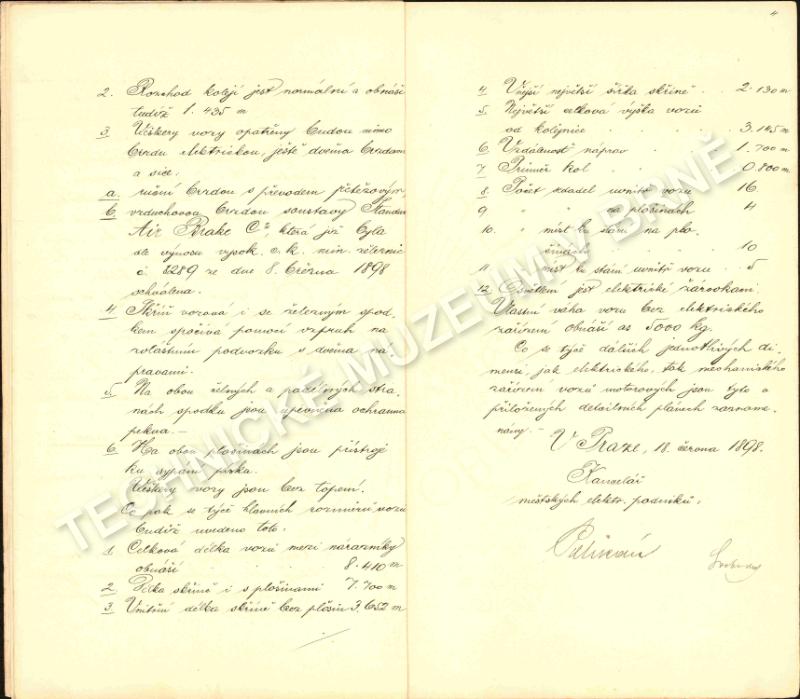 2. Rozchod kolejí jest normální a obnáší
tudíž 1.435 m
3. Veškery vozy opatřeny budou mimo
brzdu elektrickou, ještě dvěma brzdami
a sice:
a. ruční brzdou s převodem řetězovým,
b. vzduchovou brzdou soustavy Standard
Air Brake Co, která již byla
dle výnosu vysok. c. k. min. železnic
č. 3289 ze dne 8. března 1898
schválena.
4. Skříň vozová i se železným spod-
kem spočívá pomocí vzpruh na
zvláštním podvozku s dvěma ná-
pravami.
5. Na obou čelných a podélných stra-
nách spodku jsou upevněna ochranná
prkna.—
6. Na obou plošinách jsou přístroje
ku sypání písku.
Veškery vozy jsou bez topení.
Co pak se týče hlavních rozměrů vozu
budiž uvedeno toto:
1. Celková délka vozu mezi nárazníky
obnáší . . 8.410 m
2. Délka skříně i s plošinami 7.700 m
3. Vnitřní délka skříně bez plošin 3.652 m
4
4. Vnější největší šířka skříně . . 2.130 m
5. Největší celková výška vozu
od kolejnice . . . . 3.145 m
6. Vzdálenost náprav . . . 1.700 m
7. Průměr kol . . . . 0.800 m
8. Počet sedadel uvnitř vozu 16
9 " " na plošinách 4
10. " míst ku stání na plo-
šinách . . 10
11. " míst ku stání uvnitř vozu . . 5
12. Osvětlení jest elektrické žárovkami.
Vlastní váha vozu bez elektrického
zařízení obnáší as 5000 kg.
Co se týče dalších jednotlivých di-
menzí, jak elektrického, tak mechanického
zařízení vozů motorových jsou tyto v
přiložených detailních plánech zazname-
nány.—
V Praze, 18. června 1898.
Kancelář
městských elektr. podniků.
Pelikán
Svoboda
TECHNICKÉ MUZEUM V BRNĚ